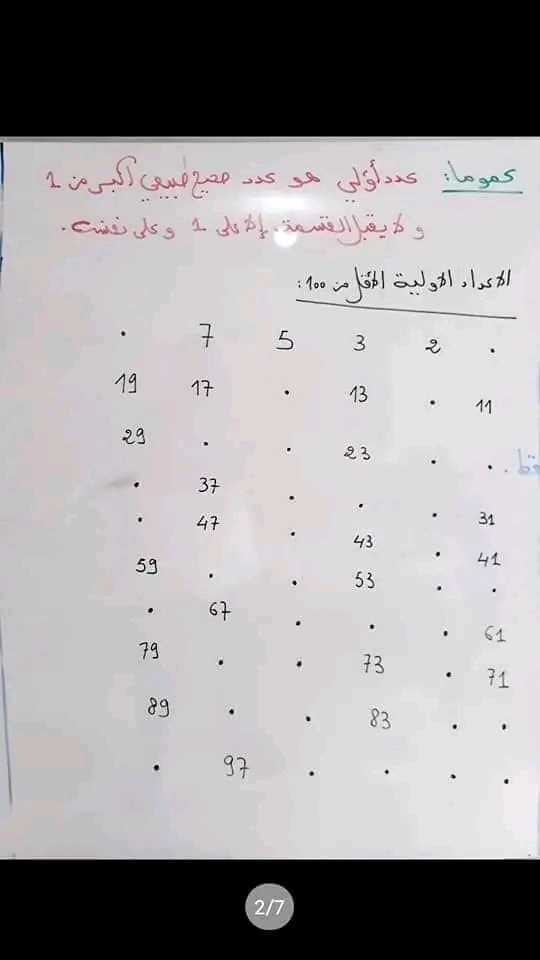 عموما: عدد أولي هو عدد صحيح طبيعي أكبر من 1
و لا يقبل القسمة إلا على 1 و على نفسه.
الاعداد الاولية الأقل من 100:
. 2 3 5 7 .
11 . 13 . 17 19
. . 23 . . 29
31 . . . 37 .
41 . 43 . 47 .
. . 53 . . 59
61 . . . 67 .
71 . 73 . . 79
. . 83 . . 89
. . . . 97 .
2/7